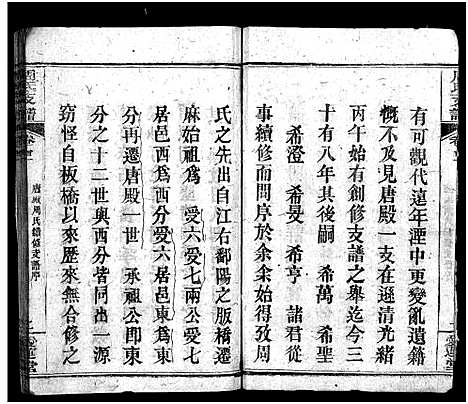 有可觀代遠年湮中更變亂遺籍
慨不及見唐殿一支在遜清光緒
丙午始有創修支譜之舉迄今三
十有八年其後嗣 希萬 希聖
希澄 希旻 希亨 諸君
事續修而問序於余余始得攷周
氏之先出自江右鄱陽之版橋遷
麻始祖為 愛六愛七兩公愛七
居邑西為西分愛六居邑東為東
分再遷唐殿一世 承祖公即東
分之十二世與西分皆同出一源
窈怪自板橋以來歷來無合修之
唐殿周氏續修支譜序
周氏支譜
卷首
愛蓮堂